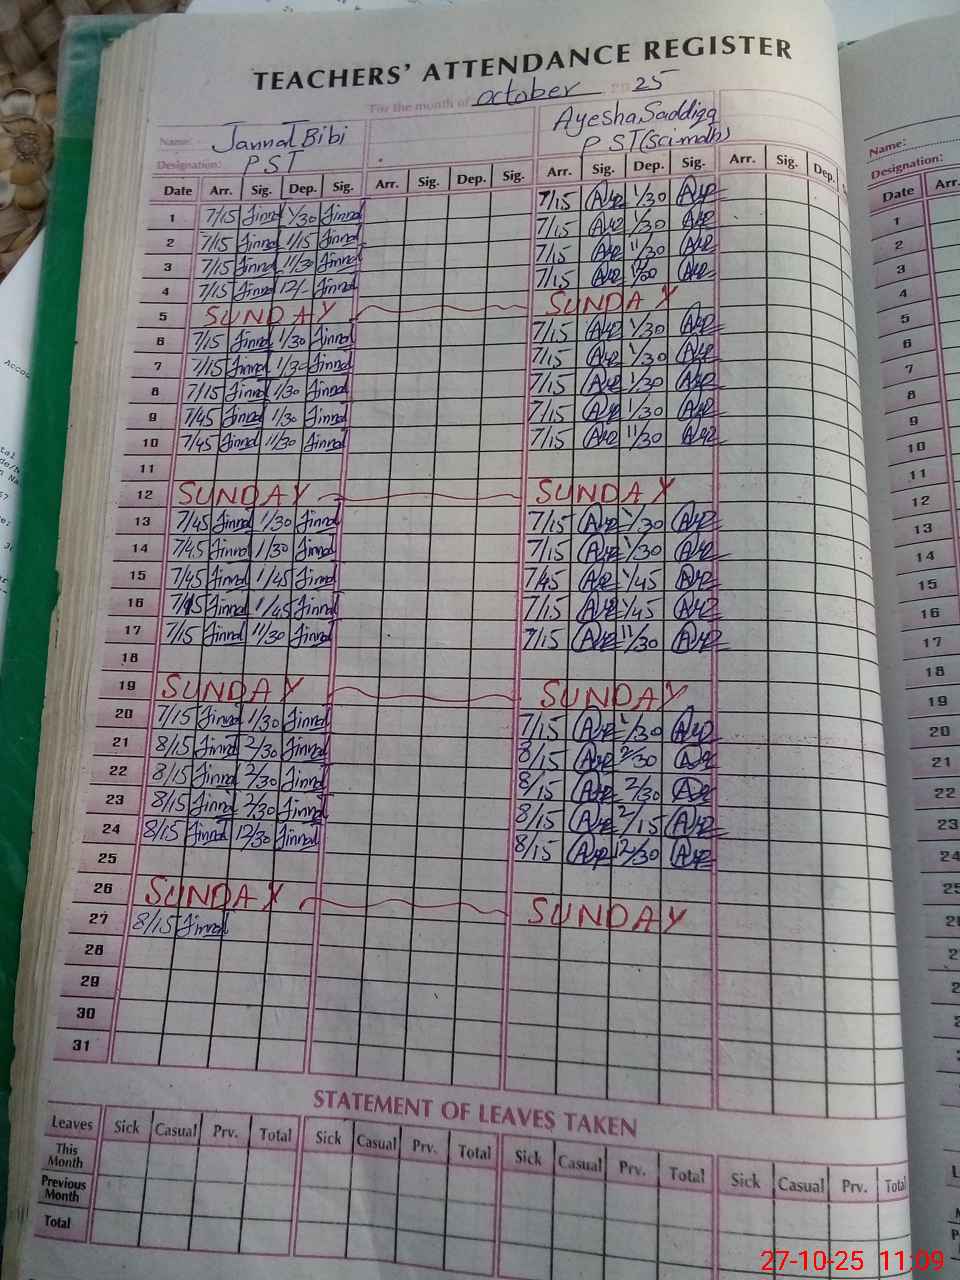 TEACHERS' ATTENDANCE REGISTER
For the month of October 25
Name: Jannat Bibi Ayesha Saddiqa
Designation: PST PST (Sci math)
Date Arr. Sig. Dep. Sig. Arr. Sig. Dep. Sig. Arr. Sig. Dep. Sig. Arr. Sig. Dep.
1 7/15 Jinnd 1/30 Jinnd 7/15 1/30
2 7/15 Jinnd 1/15 Jinnd 7/15 1/30
3 7/15 Jinnd 11/30 Jinnd 7/15 11/30
4 7/15 Jinnd 12/- Jinnd 7/15
5 SUNDAY SUNDAY
6 7/15 Jinnd 1/30 Jinnd 7/15 1/30
7 7/15 Jinnd 1/30 Jinnd 7/15 1/30
8 7/15 Jinnd 1/30 Jinnd 7/15 1/30
9 7/45 Jinnd 1/30 Jinnd 7/15 1/30
10 7/45 Jinnd 11/30 Jinnd 7/15 11/30
11
12 SUNDAY SUNDAY
13 7/45 Jinnd 1/30 Jinnd 7/15 1/30
14 7/45 Jinnd 1/30 Jinnd 7/15 1/30
15 7/45 Jinnd 1/45 Jinnd 7/45 1/45
16 7/15 Jinnd 1/45 Jinnd 7/15 1/45
17 7/15 Jinnd 11/30 Jinnd 7/15 11/30
18
19 SUNDAY SUNDAY
20 7/15 Jinnd 1/30 Jinnd 7/15 1/30
21 8/15 Jinnd 2/30 Jinnd 8/15 2/30
22 8/15 Jinnd 2/30 Jinnd 8/15 2/30
23 8/15 Jinnd 2/30 Jinnd 8/15 2/15
24 8/15 Jinnd 12/30 Jinnd 8/15 12/30
25
26 SUNDAY SUNDAY
27 8/15 Jinnd
28
29
30
31
STATEMENT OF LEAVES TAKEN
Leaves Sick Casual Prv. Total Sick Casual Prv. Total Sick Casual Prv. Total Sick Casual Prv. Total
This Month
Previous Month
Total
Name:
Designation:
Date Arr.
1
2
3
4
5
6
7
8
9
10
11
12
13
14
15
16
17
18
19
20
21
22
23
24
27-10-25 11:09